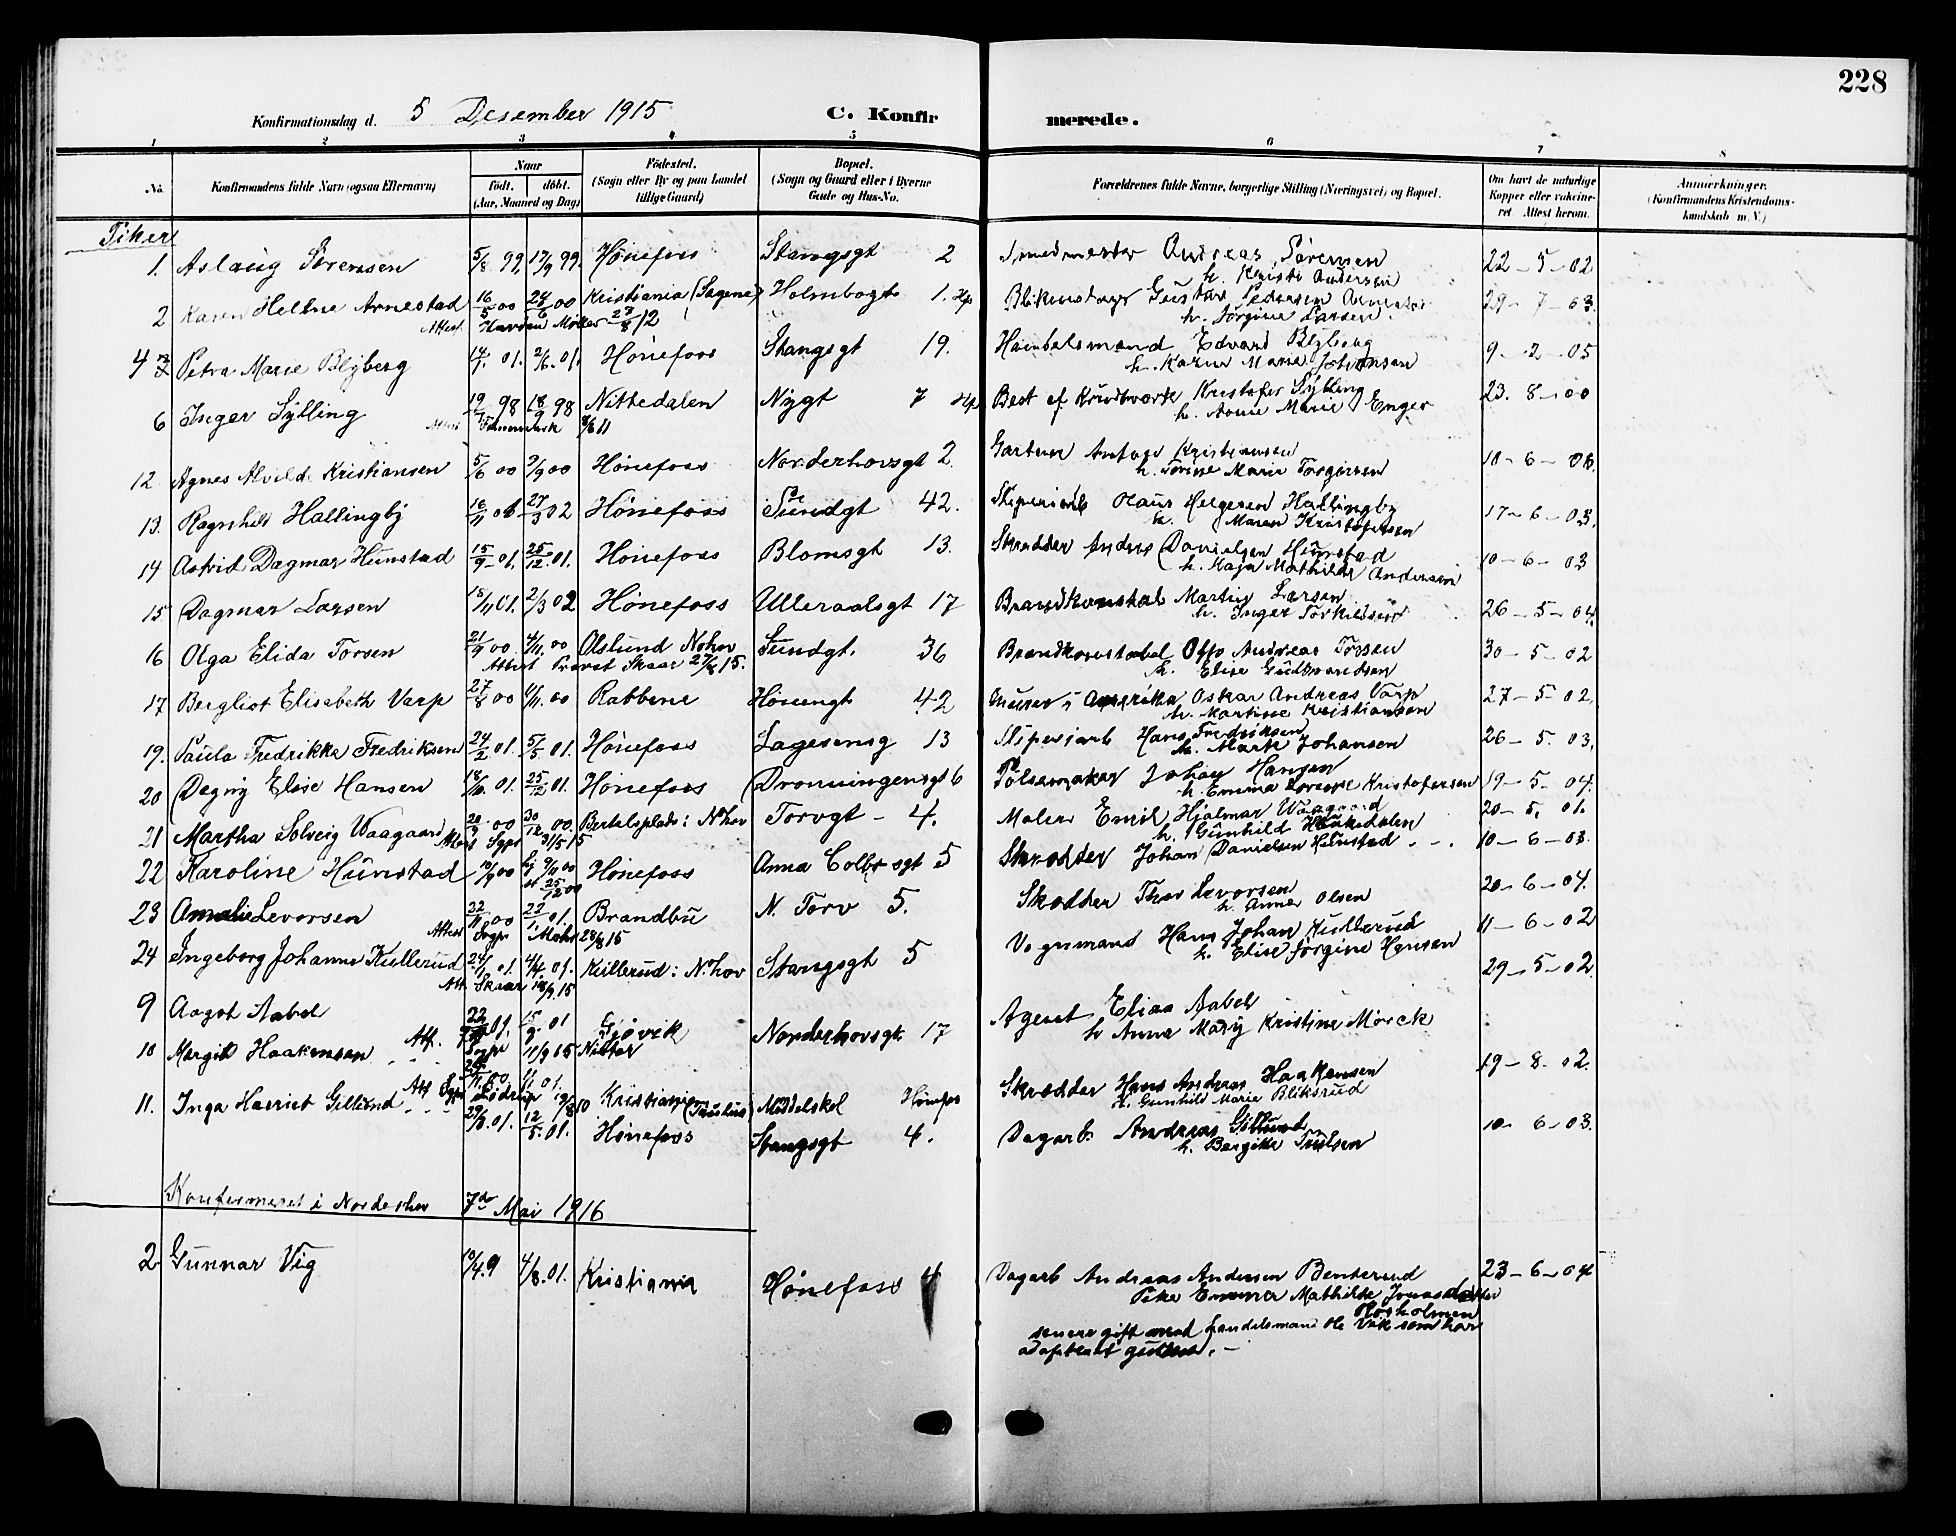 228
Konfirmationsdag d. 5 Desember 1915 C. Konfirmerede.
1 2 3 4 5 6 7 8
No. Konfirmandens fulde Navn (ogsaa Efternavn) Naar født. døbt. (Aar, Maaned og Dag) Födested. (Sogn eller By og paa Landet tillige Gaard) Bopæl. (Sogn og Gaard eller i Byerne Gade og Hus-No. Forældrenes fulde Navne, borgerlige Stilling (Næringsvei) og Bopæl. Om havt de naturlige Kopper eller vakcineret Attest herom. Anmærkninger. (Konfirmandens Kristendomskundskab m. V.)
Piker
1. Aslaug Sørensen 5/8 99, 17/9 99. Hønefoss Stangsgt 2 Smedmester Andreas Sørensen 22-5-02
h. Kristi Andersen
2 Karen Helene Arnestad 16/5 00 24/6 00 Kristiania (Sagene) Holmbogt 1. Blikenslager Gustav Pedersen Arnestad 29-7-03.
Attest 27/8 12 h. Jørgine Larsen.
4 Petra Marie Blyberg 14/1. 01. 2/6. 01. Hønefoss Stangsgt 19. Handelsmand Edvard Blyberg 9-2-05
h. Karen Marie Johansen
6 Inger Sylling 19/7 98 18/9 98 Nittedalen Nygt 7 Best af Krudtværk Kristofer Sylling 23. 8-00
Attest 8/6 11 h. Anne Marie Enger
12 Agnes Alvilde Kristiansen 5/6 00 9/9 00 Hønefoss Norderhovsgt 2. Gartner Anton Kristiansen 10-6-06.
h. Torine Marie Torgersen
13. Ragnhild Hallingby 16/11 01 27/3 02 Hønefoss Sundgt 42. Sliperiarb Olaus Helgesen Hallingby 17-6-03.
h. Maren Kristofersen
14 Astrid Dagmar Hunstad 15/9 01. 25/12. 01. Hønefoss Blomsgt 13. Skrædder Anders Danielsen Hunstad 10-6-03
h. Kaja Mathilde Andersen
15 Dagmar Larsen 18/11 01. 2/3 02 Hønefoss Ulleraalsgt 17 Brandkonstab Martin Larsen 26-5-04.
h. Inger Torkildsen
16 Olga Elida Torsen 21/9 00. 4/11. 00 Aslund N.hov Sundgt. 36 Brandkonstabel Otto Andreas Torsen 30-5-02
Attest Provst Skaar 27/8 15. h. Elise Gudbrandsen
17 Bergliot Elisabeth Varp 27/8 00 4/11. 00 Rabbene Hønengt 42 Murer i Amerika Oskar Andreas Varp 27-5-02
h. Martine Kristiansen
19. Paula Fredrikke Fredriksen 24/2. 01. 5/5 01. Hønefoss Lagesensg 13 Sliperiarb Hans Fredriksen 26-5. 03.
h. Marte Johansen
20 Dagny Elise Hansen 18/10. 01. 25/12 01. Hønefoss Dronningensgt 6 Pølsemaker Johan Hansen 19-5-04.
h. Emma Lovise Kristofersen
21 Martha Solveig Waagaard 20/9 00 30/12 00. Bertelsplads: N.hov Torvgt - 4. Maler Emil Hjalmar Waagaard 20-5. 01.
Attest Sgpr 31/5 15 h. Gunhild Haakedalen
22 Karoline Hunstad 10/9 00 hj 9/11 00 Hønefoss Anna Colbsgt 5 Skrædder Johan Danielsen Hunstad 10-6-03.
st 25/12 00
23 Amalie Levorsen 22/11 00 22/1 01. Brandbu N. Torv 5. Skrædder Thor Levorsen 20-6-04.
Attest Sogpr Mohr 28/8 15 h. Anne Olsen
24 Ingeborg Johanne Kullerud 24/1 01. 4/4. 01. Kullerud: N.hov Stangsgt 5 Vognmand Hans Johan Kullerud 11-6-02
Att Skaar 18/9. 15 h. Elise Jørgine Hansen
29-5-02
9 Aagot Aabel 22/7 01. 15/9. 01 Gjøvik Norderhovsgt 17 Agent Elias Aabel
Att. Sogpr 11/9 15 h Anna Mary Kristine Mørck
10 Margit Haakensen 00 01. Kristiania (Paulus) Middelskol Hønefos Skrædder Hans Andreas Haakensen 19-8. 02.
Att Sgpr h. Gunhild Marie Bliksrud
11. Inga Harriet Gillund 27/3. 01. 12/5. 01. Hønefoss Stangsgt 4. Dagarb. Andreas Gillund 10-6-03.
h. Bergitte Paulsen
Konfirmeret i Norderhov 7de Mai 1916
2 Gunnar Vig 10/4. 9 4/8. 01. Kristiania Hønefoss 4 Dagarb Andreas Andersen Benterud 23-6-04
Pike Emma Mathilde Jonasdatter
Røsholmen
senere gift med handelsmand Ole Vik som har
adopteret gutten. -